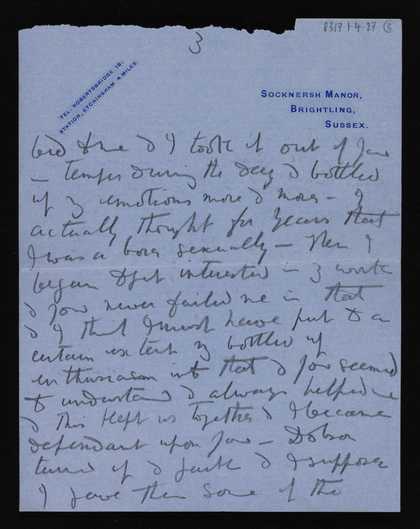 8319.1.4.27 (3
3
TEL. ROBERTSBRIDGE 19.
STATION, ETCHINGHAM 4 MILES.
SOCKNERSH MANOR,
BRIGHTLING,
SUSSEX.
bed time & I took it out of you
in temper during the day & bottled
up my emotions more & more - I
actually thought for years that
I was a bore sexually - Then I
began to get interested in my work
& you never failed me in that
& I think I must have put to a
certain extent my bottled up
enthusiasm into that & you seemed
to understand & always helped me
& this kept us together & I became
dependant upon you - Dobson
turned up & & I suppose
I gave them some of the